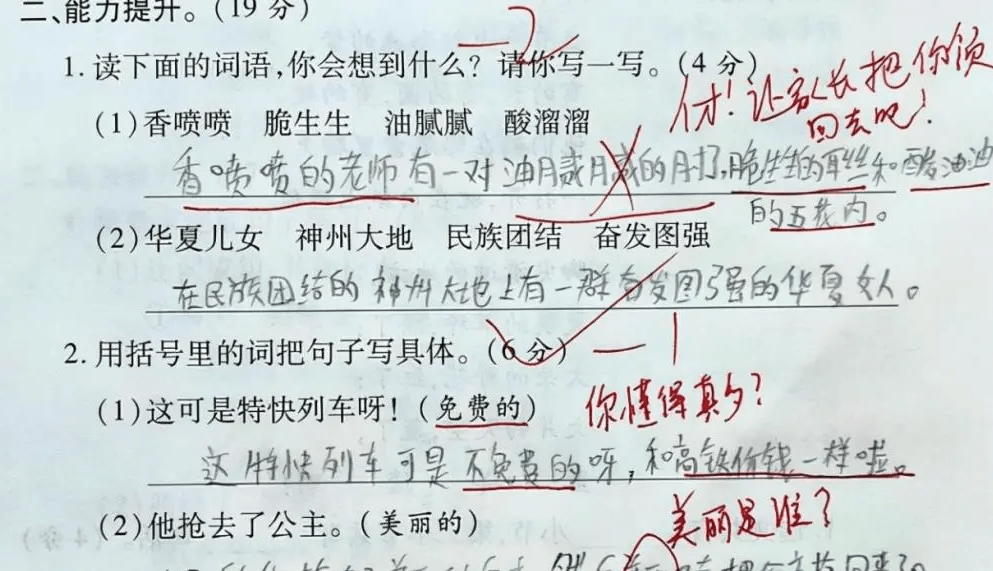 二、能力提升。(19 分)
-2
1. 读下面的词语,你会想到什么？请你写一写。(4 分)
仔！让家长把你领
回去吧！
(1)香喷喷 脆生生 油腻腻 酸溜溜
香喷喷的老师有一对油月咸月咸的月打,脆生生的耳丝和酸油油
的五花肉。
(2)华夏儿女 神州大地 民族团结 奋发图强
在民族团结的神州大地上有一群奋发图强的华夏女人。
2. 用括号里的词把句子写具体。(6 分) -1
(1)这可是特快列车呀！(免费的)
你懂得真多？
这特快列车可是不免费的呀，和高铁价钱一样啦。
(2)他抢去了公主。(美丽的)
美丽是谁？